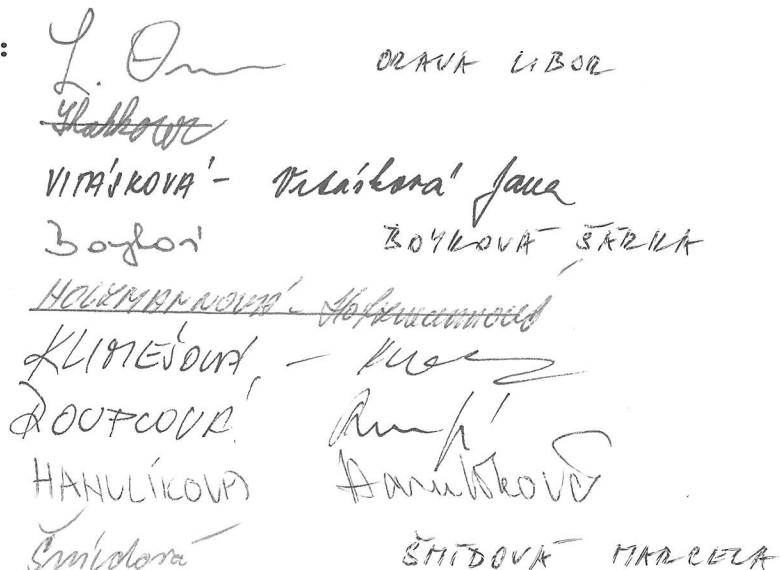 : L. O ORAVA LIBOR
VITÁSKOVÁ - Vitásková Jana
Boyková BOYKOVÁ ŠÁRKA
HOLZMANNOVÁ -
KLIMEŠOVÁ -
ROUPCOVÁ
HANULÍKOVÁ Hanulíková
Šmídová ŠMÍDOVÁ MARCELA